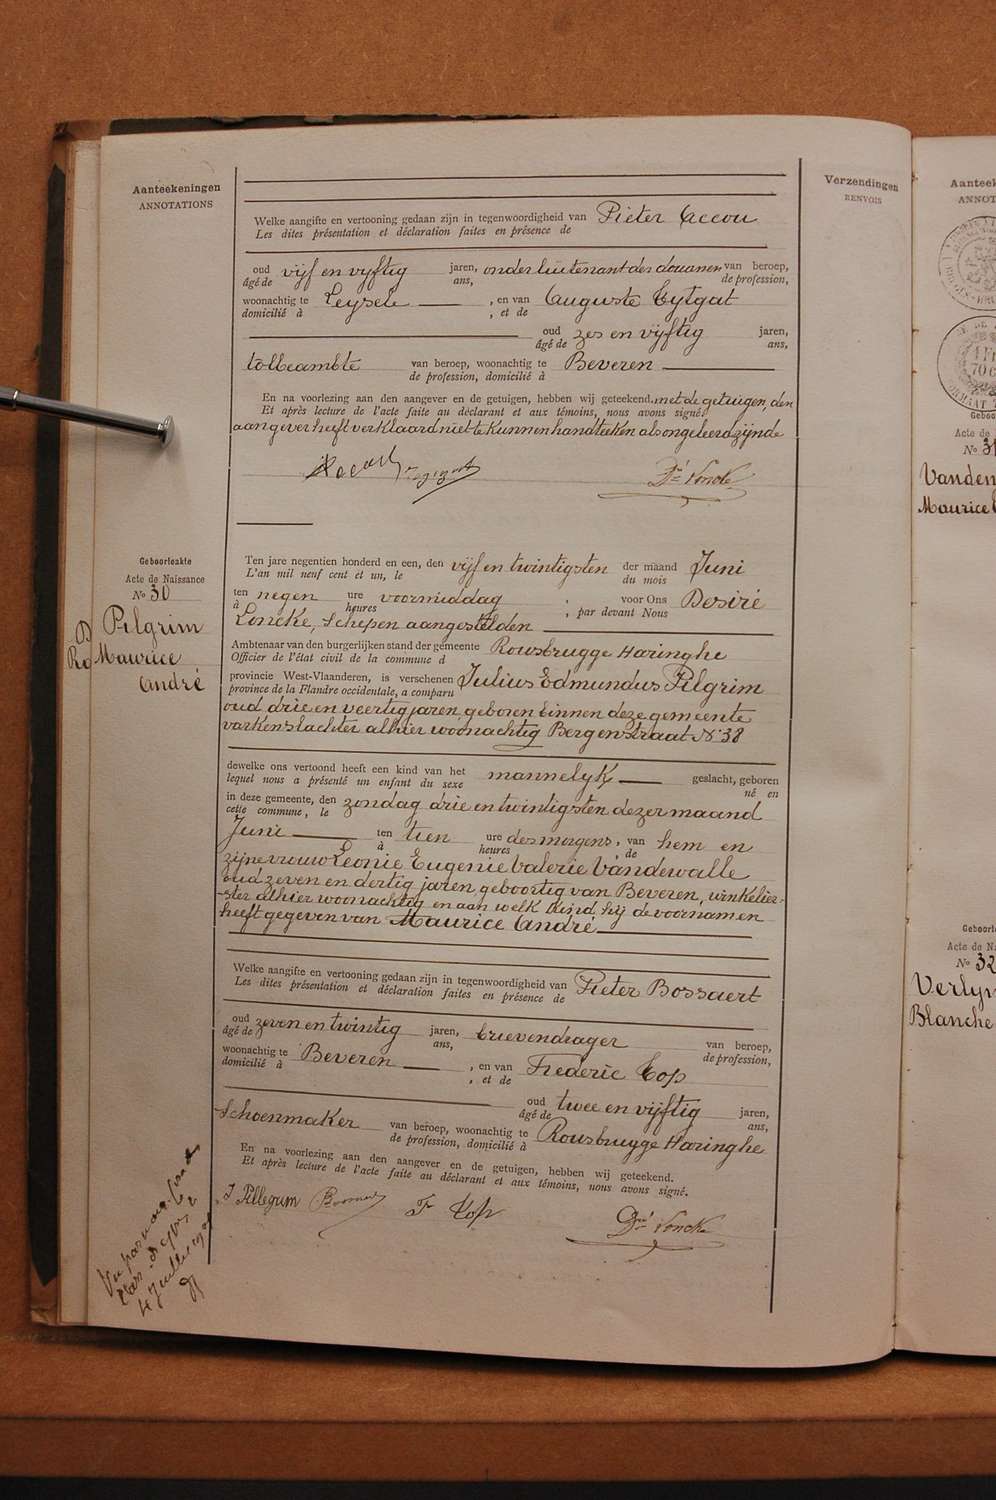 Aanteekeningen
ANNOTATIONS
Verzendingen
RENVOIS
Welke aangifte en vertooning gedaan zijn in tegenwoordigheid van Pieter Accou
Les dites présentation et déclaration faites en présence de
oud vijf en vyftig jaren, onderluitenant der douanen van beroep,
âgé de ans, de profession,
woonachtig te Leysele , en van Auguste Eytgat
domicilié à , et de
oud zes en vijftig jaren,
âgé de ans,
tolbeambte van beroep, woonachtig te Beveren
de profession, domicilié à
En na voorlezing aan den aangever en de getuigen, hebben wij geteekend. met de getuigen, den
Et après lecture de l'acte faite au déclarant et aux témoins, nous avons signé
aangever heeft verklaard niet te kunnen handteeken als ongeleerd zijnde
Dré Loncke
Geboorteakte
Acte de Naissance
No 30
Pilgrim
Maurice
André
Ten jare negentien honderd en een, den vijf en twintigsten der maand Juni
L'an mil neuf cent et un, le du mois
ten negen ure voormiddag ; voor Ons Desiré
à heures ; par devant Nous
Loncke, Schepen aangestelden
Ambtenaar van den burgerlijken stand der gemeente Rousbrugge Haringhe
Officier de l'état civil de la commune d
provincie West-Vlaanderen, is verschenen Julius Edmundus Pilgrim
province de la Flandre occidentale, a comparu
oud drie en veertig jaren, geboren binnen deze gemeente
varkenslachter alhier woonachtig Bergenstraat No 38
dewelke ons vertoond heeft een kind van het mannelyk geslacht, geboren
lequel nous a présenté un enfant du sexe né en
in deze gemeente, den zondag drie en twintigsten dezer maand
cette commune, le
Juni ten tien ure des morgens, van hem en
à heures , de
zijne vrouw Leonie Eugenie Valerie Vandewalle
oud zeven en dertig jaren geboortig van Beveren, winkelier-
-ster alhier woonachtig en aan welk kind hij de voornamen
heeft gegeven van Maurice André
Welke aangifte en vertooning gedaan zijn in tegenwoordigheid van Pieter Bossaert
Les dites présentation et déclaration faites en présence de
oud zeven en twintig jaren, brievendrager van beroep,
âgé de ans, de profession,
woonachtig te Beveren , en van Frederic Top
domicilié à , et de
oud twee en vijftig jaren,
âgé de ans,
Schoenmaker van beroep, woonachtig te Rousbrugge Haringhe
de profession, domicilié à
En na voorlezing aan den aangever en de getuigen, hebben wij geteekend.
Et après lecture de l'acte faite au déclarant et aux témoins, nous avons signé.
J Pillegrim
F Top
Dré Loncke
Aanteek
ANNOT
Geboo
Acte de
No 31
Vanden
Maurice
Geboorte
Acte de Na
No 32
Verlyn
Blanche